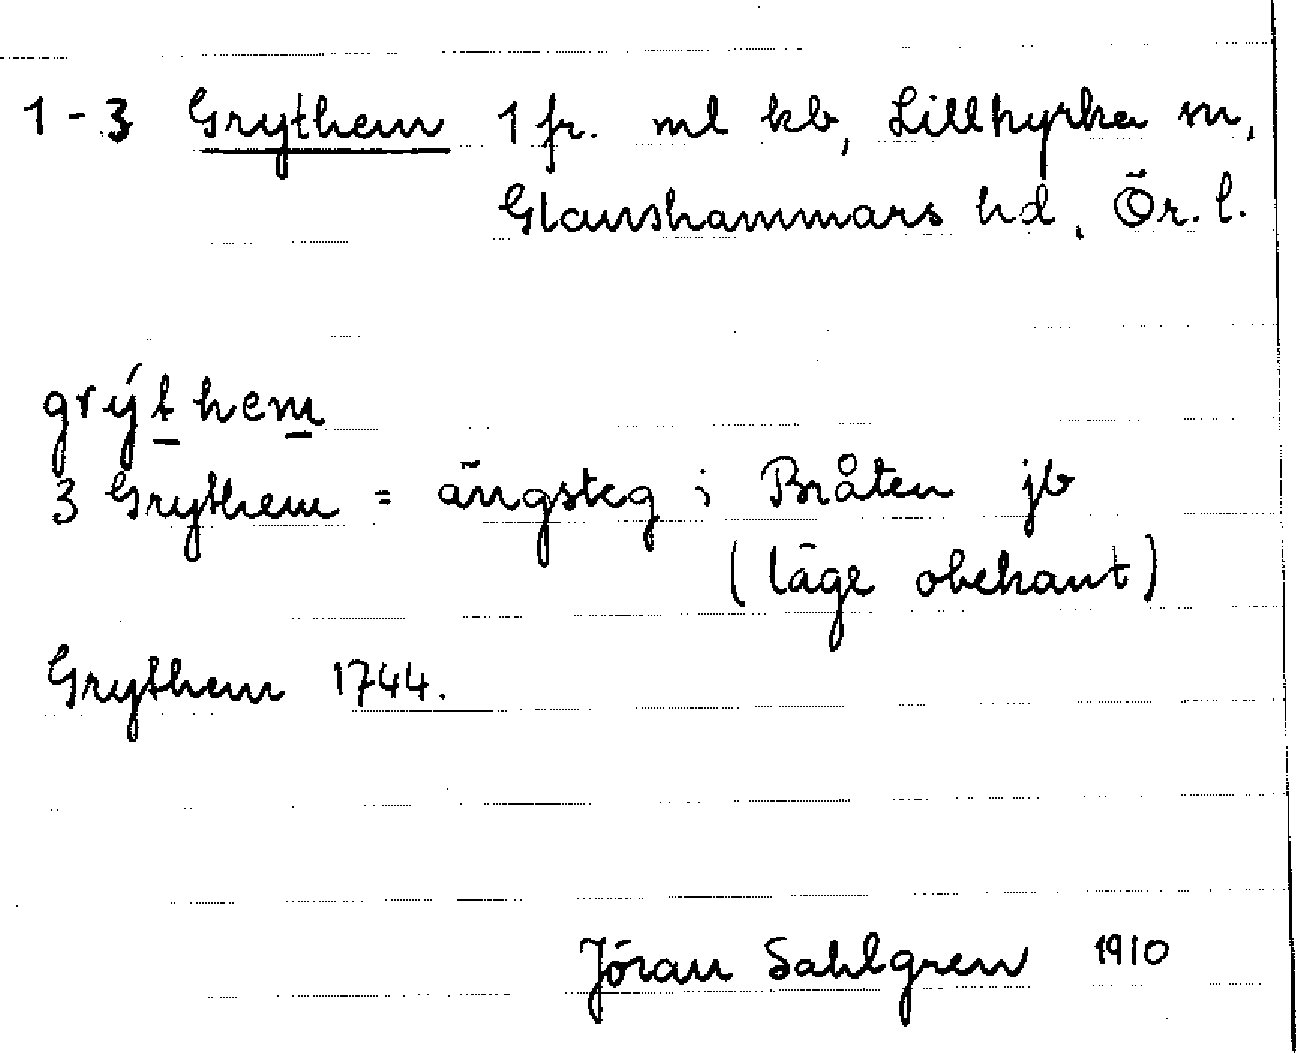 1-3 Grythem 1 fr. ml kb, Lillkyrka sn,
Glanshammars hd, Ör. l.
grýt hem
3 Grythem = ängsteg i Bråten jb
(läge obekant)
Grythem 1744.
Jöran Sahlgren 1910